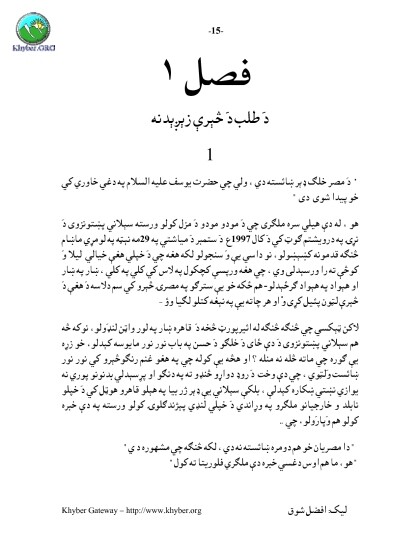 Khyber.ORG
-15-
فصل ۱
دَ طلب دَ څېرې زېږېدنه
1
" دَ مصر خلک ډېر ښائسته دي ، ولې چې حضرت يوسف عليه السلام په دغې خاورې کې
خو پيدا شوی دی "
هو ، له دې هيلې سره ملګری چې دَ مودو مودو دَ مزل کولو ورسته سېلاني پښتونزوی دَ
نړۍ په درويشتم ګوټ کې دَ کال 1997ع دَ ستمبر دَ مياشتې په 29مه نېټه په لومړي ماښام
څنګه قدمونه کښېښولو ، نو داسې يې وَ سنجولو لکه هغه چې دَ خپلې هغې خيالي ليلا وَ
کوڅې ته را ورسېدلی وي ، چې هغه ورپسې کچکول په لاس کې کلي په کلي ، ښار په ښار
او هېواد په هېواد ګرځېدلو- هم ځکه خو يې سترګو په مصرۍ څېرو کې سم دلاسه دَ هغې دَ
څېرې لټون پئيل کړی وْ او هر چاته يې په نېغه کتلو لګيا وؤ -
لاکن ټېکسي چې څنګه څنګه له ائيرپورټ څخه دَ قاهره ښار په لور واټن لنډولو ، نوکه څه
هم سېلاني پښتونزوی دَ دې ځای دَ خلکو دَ حسن په باب نور نور مايوسه کېدلو ، خو زړه
يې ګوره چې ماته څله نه منله ؟ او هڅه يې کوله چې په هغو غنم رنګوڅېرو کې نور نور
ښائست ولټوي ، چې دې وخت دَ رودَ دواړو څنډو ته په دنګو او پرېسېدلي بدنونو پورې نه
يوازي نښتي ښکاره کېدلې ، بلکې سېلاني يې ډېر ژر بيا په هېلو قاهرو هوټل کې دَ خپلو
نابلد و خارجيانو ملګرو په وړاندې دَ خپلې لنډې پېژندګلوۍ کولو ورسته په دې خبره
کولو هم وَپارولو ، چې ..
"دا مصريان خو هم دومره ښائسته نه دي ، لکه څنګه چې مشهوره دي "
"هو ، ما هم اوس دغسې خبره دې ملګري فلوريتا ته کول"
Khyber Gateway – http://www.khyber.org
ليک: افضل شوق